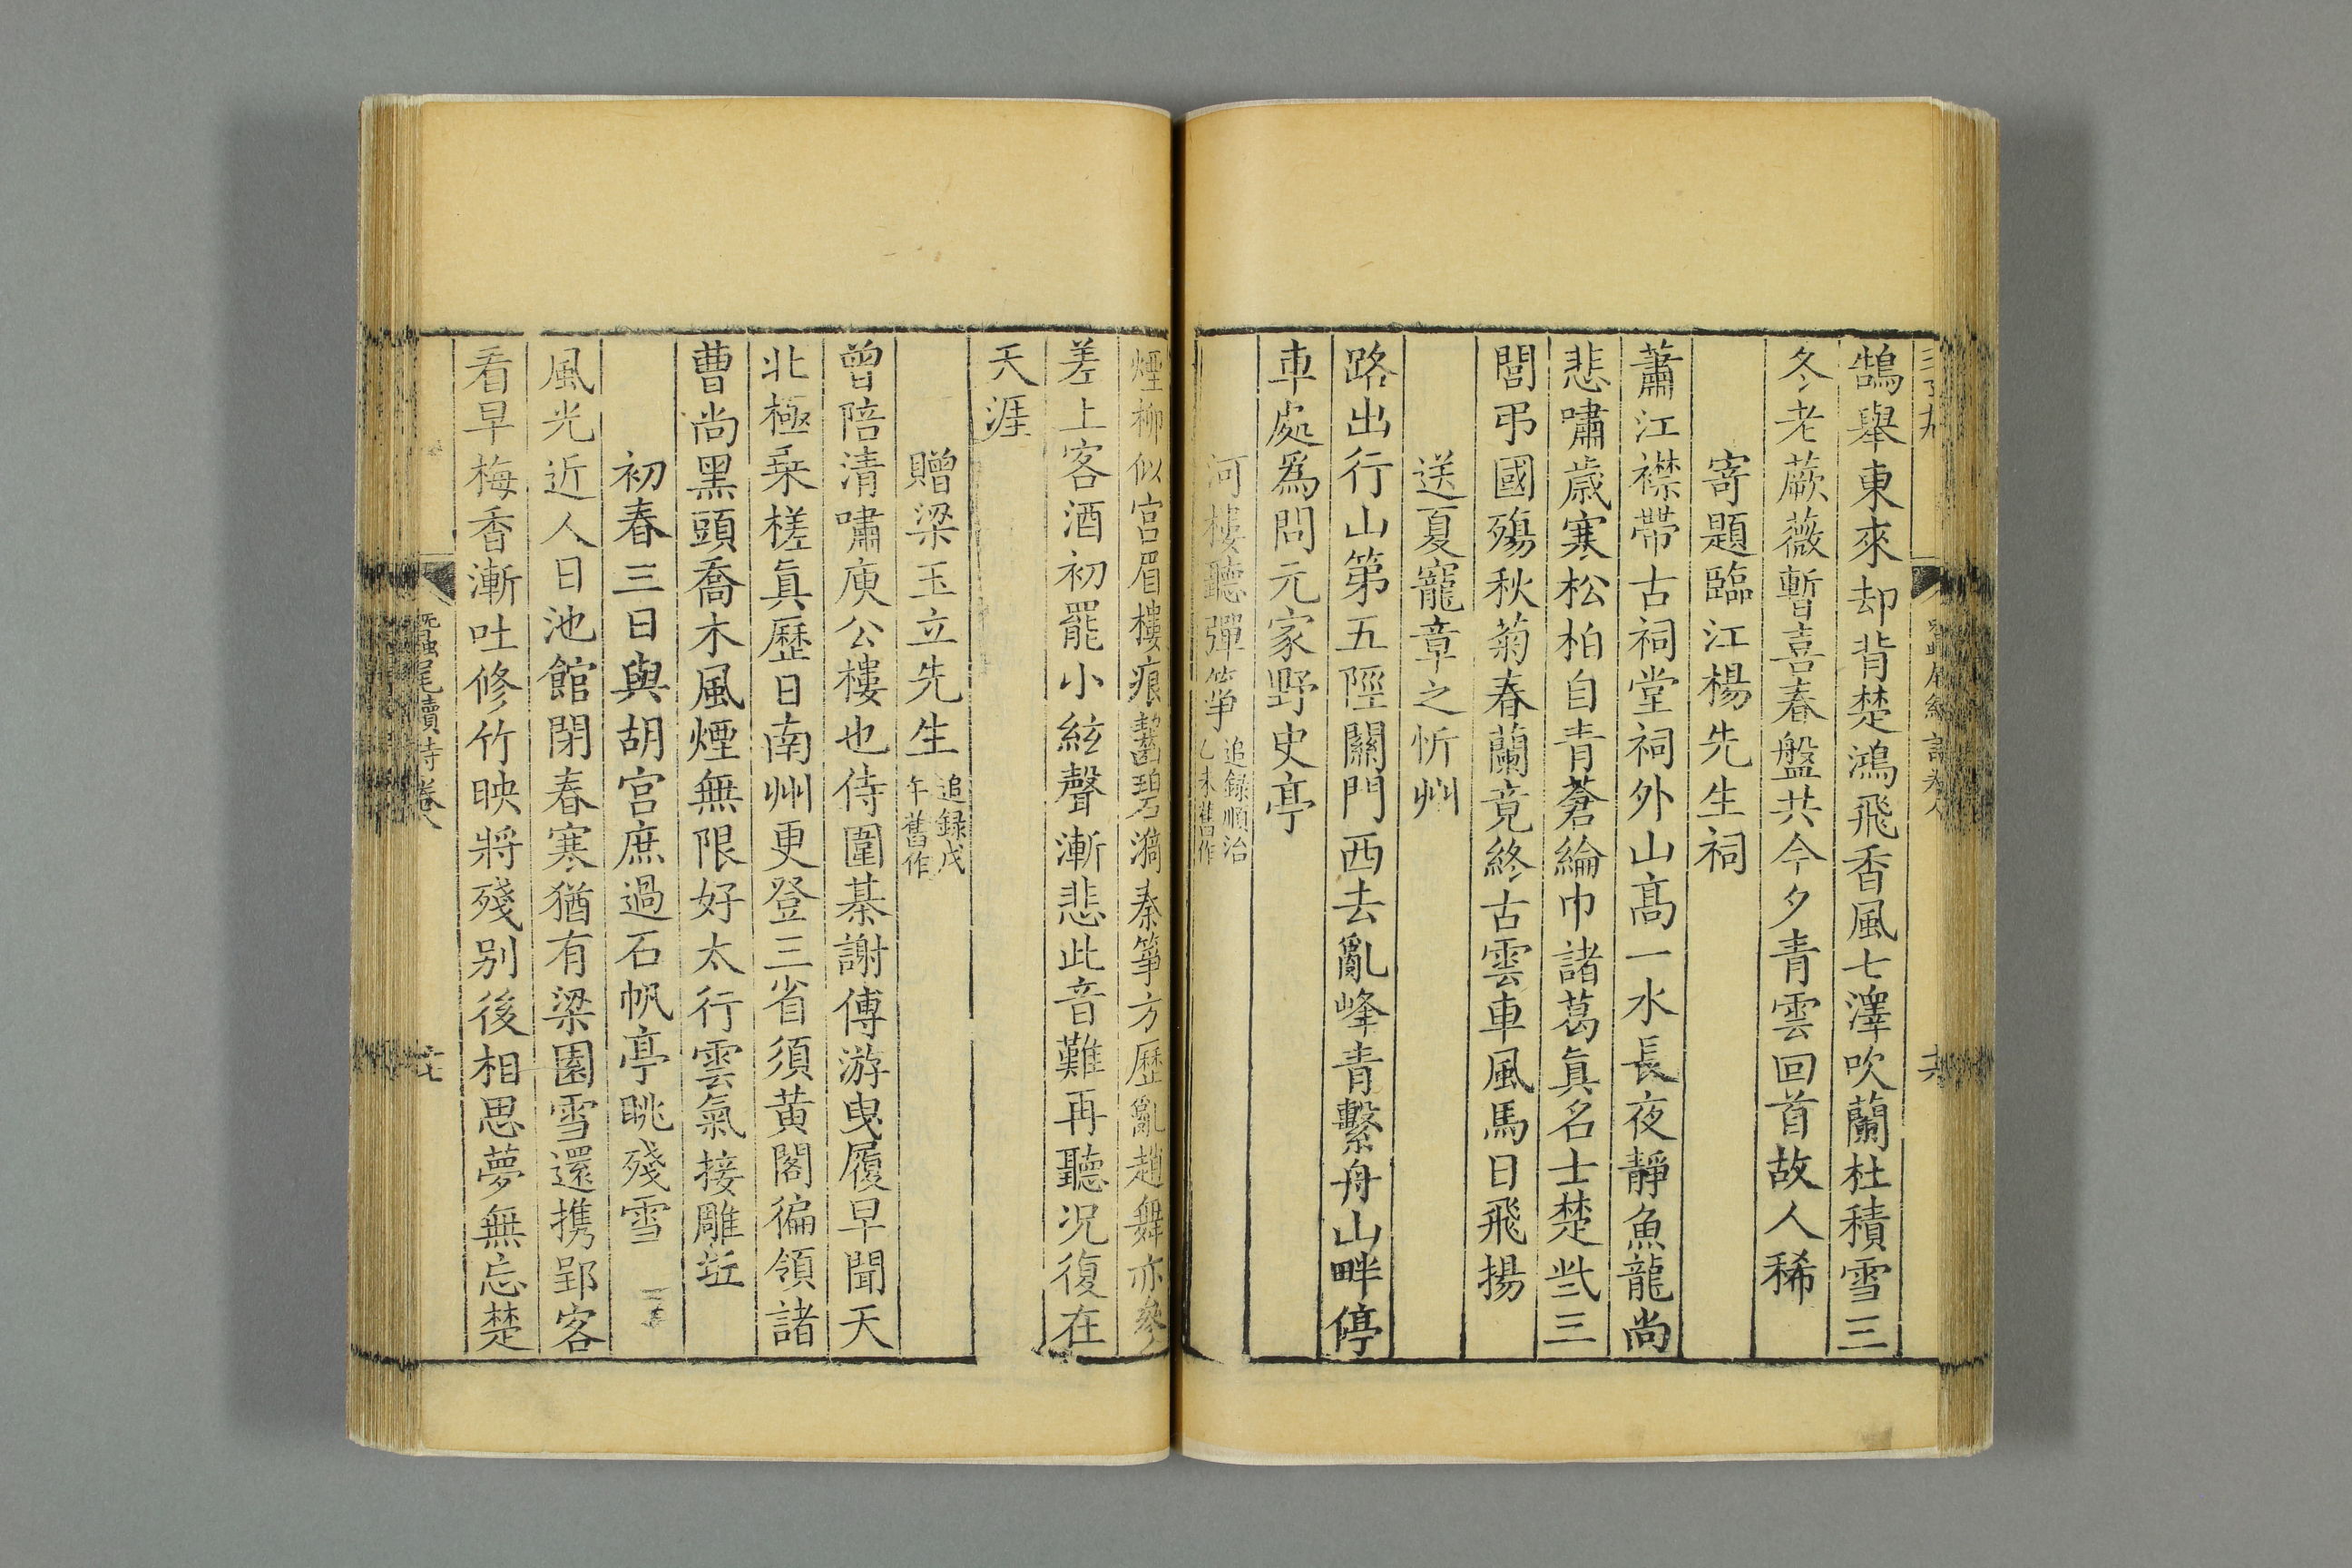 鵠舉東來却背楚鴻飛香風七澤吹蘭杜積雪三
冬老蕨薇暫喜春盤共今夕青雲回首故人稀
寄題臨江楊先生祠
蕭江襟帶古祠堂祠外山高一水長夜靜魚龍尚
悲嘯歲寒松柏自青蒼綸巾諸葛眞名士楚些三
閭弔國殤秋菊春蘭竟終古雲車風馬日飛揚
送夏寵章之忻州
路出行山第五陘關門西去亂峰青繫舟山畔停
車處爲問元家野史亭
河樓聽彈箏追録順治
乙未舊作
煙柳似宮眉樓痕碧漪秦箏方歷亂趙舞亦參
差上客酒初罷小絃聲漸悲此音難再聽况復在
天涯
贈梁玉立先生追録戊
午舊作
曾陪清嘯庾公樓也侍圍棊謝傅游曳履早聞天
北極乗槎眞歷日南州更登三省須黃閣徧領諸
曹尚黑頭喬木風煙無限好太行雲氣接雕丘
初春三日與胡宮庶過石帆亭眺殘雪
風光近人日池館閉春寒猶有梁園雪還携郢客
看早梅香漸吐修竹映將殘别後相思夢無忘楚
蠶尾續詩卷八